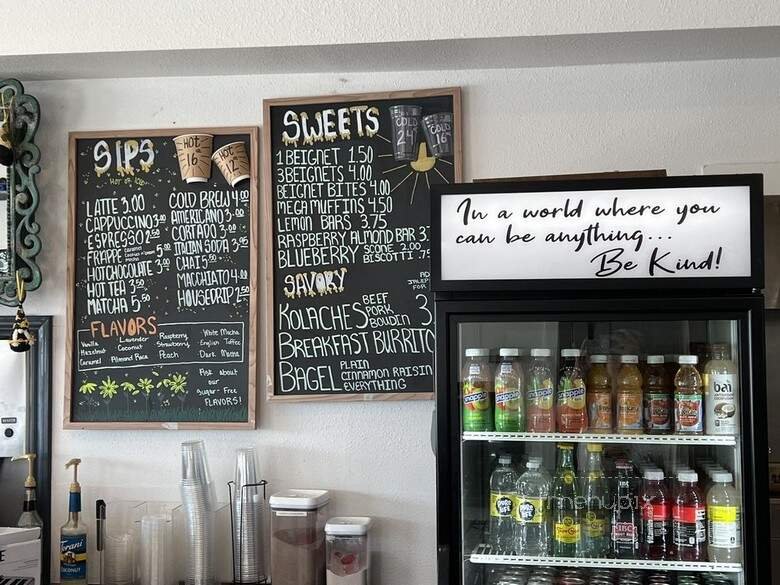 SIPS
HOT 16
HOT 12
HOT OR ICED
LATTE 3.00
CAPPUCCINO 3.00
ESPRESSO 2.50
FRAPPE 5.00
HOT CHOCOLATE 3.00
HOT TEA 3.50
MATCHA 5.50
COLD BREW 4.00
AMERICANO 3.00
CORTADO 3.00
ITALIAN SODA 3.95
CHAI 5.50
MACCHIATO 4.00
HOUSE DRIP 2.50
FLAVORS
Vanilla
Hazelnut
Caramel
Lavender
Coconut
Almond Roca
Raspberry
Strawberry
Peach
White Mocha
English Toffee
Dark Mocha
Ask about
our
Sugar-Free
FLAVORS!
SWEETS
COLD 24
COLD 16
1 BEIGNET 1.50
3 BEIGNETS 4.00
BEIGNET BITES 4.00
MEGA MUFFINS 4.50
LEMON BARS 3.75
RASPBERRY ALMOND BAR 3
BLUEBERRY SCONE 2.00
BISCOTTI .75
SAVORY
KOLACHES BEEF
PORK
BOUDIN
3
BREAKFAST BURRITO
BAGEL PLAIN
CINNAMON RAISIN
EVERYTHING
In a world where you
can be anything...
Be Kind!
Snapple
Snapple
Snapple
Snapple
bai
Torani
COCONUT
menupix
Topo Chico
IBC